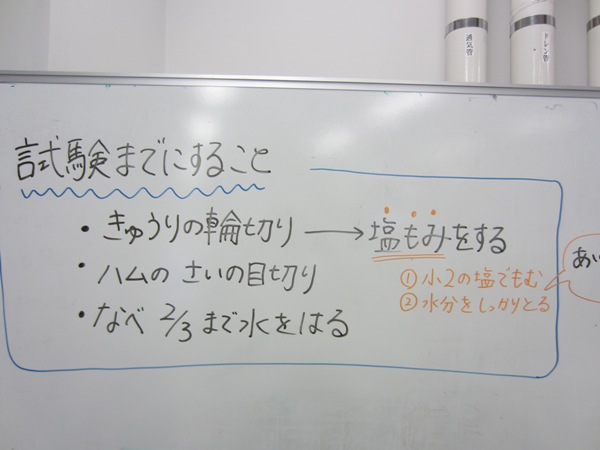 通気管
ドレン管
試験までにすること
・きゅうりの輪切り → 塩もみをする
① 小2の塩でもむ
② 水分をしっかりとる
あい
・ハムの さいの目切り
・なべ 2/3 まで水をはる